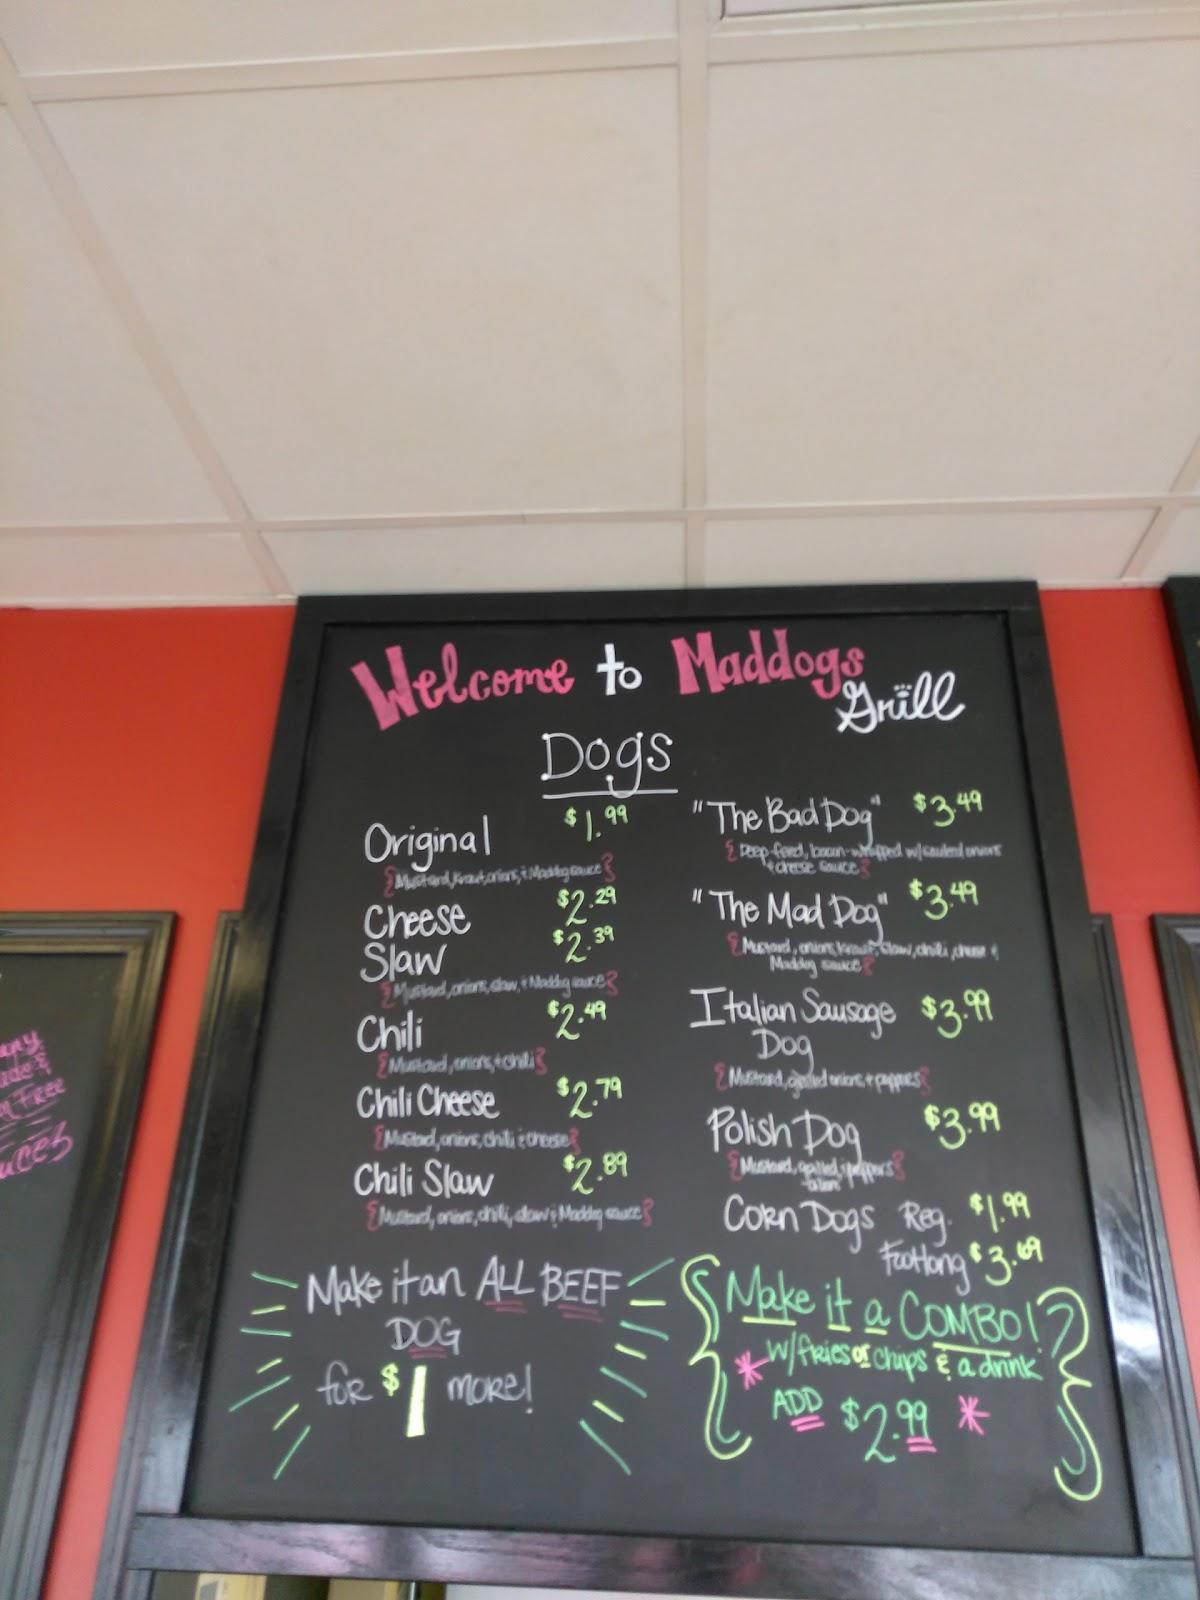 Welcome to Maddogs
Grill
Dogs
Original $1.99
{Mustard, Kraut, onions, & Maddog sauce}
Cheese $2.29
Slaw $2.39
{Mustard, onions, slaw, & Maddog sauce}
Chili $2.49
{Mustard, onions, & chili}
Chili Cheese $2.79
{Mustard, onions, chili & cheese}
Chili Slaw $2.89
{Mustard, onions, chili, slaw & Maddog sauce}
Make it an ALL BEEF
DOG
for $1 more!
"The Bad Dog" $3.49
{Deep-fried, bacon-wrapped w/sauteed onions
& cheese sauce}
"The Mad Dog" $3.49
{Mustard, onions, Kraut, slaw, chili, cheese &
Maddog sauce}
Italian Sausage $3.99
Dog
{Mustard, grilled onions, & peppers}
Polish Dog $3.99
{Mustard, grilled peppers}
Corn Dogs Reg. $1.99
Footlong $3.69
Make it a COMBO!
w/fries or chips & a drink
ADD $2.99
any
Free